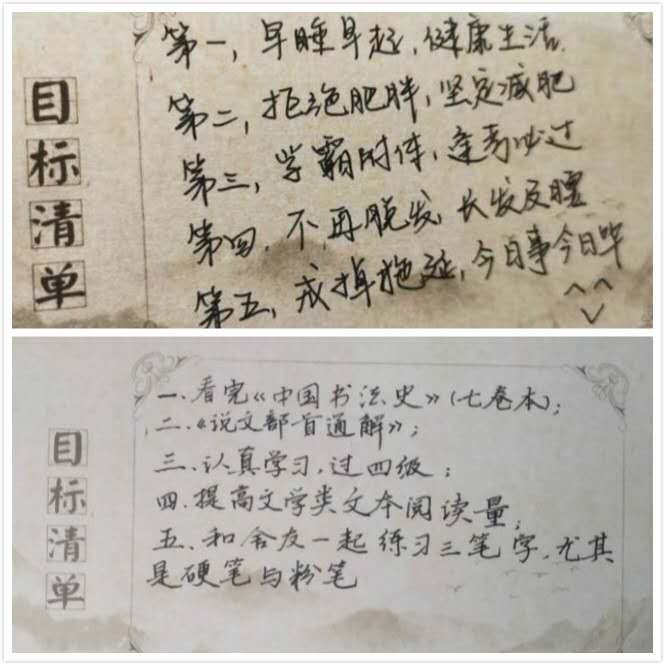 目标清单
第一，早睡早起，健康生活.
第二，拒绝肥胖，坚定减肥
第三，学霸附体，逢考必过
第四，不再脱发，长发及腰
第五，戒掉拖延，今日事今日毕
目标清单
一、看完《中国书法史》(七卷本)；
二、《说文部首通解》；
三、认真学习，过四级；
四、提高文学类文本阅读量；
五、和舍友一起练习三笔字，尤其
是硬笔与粉笔